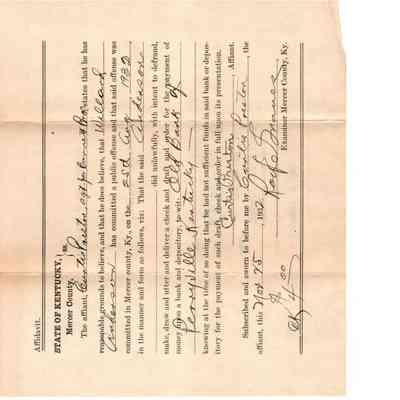 Affidavit.
STATE OF KENTUCKY, } ss.
Mercer County.
The affiant, Curtis Preston states that he has
reasonable grounds to believe, and that he does believe, that Willard
Anderson has committed a public offense and that said offense was
committed in Mercer county, Ky., on the 25th Aug 1932
in the manner and form as follows, viz: That the said Anderson
did unlawfully, with intent to defraud,
make, draw and utter and deliver a check and draft and order for the payment of
money upon a bank and depository, to-wit: Bank of
Perryville Kentucky
knowing at the time of so doing that he had not sufficient funds in said bank or depos-
itory for the payment of such draft, check and order in full upon its presentation.
Curtis Preston, Affiant.
Subscribed and sworn to before me by Curtis Preston, the
affiant, this Nov 25 1932
Examiner Mercer County, Ky.